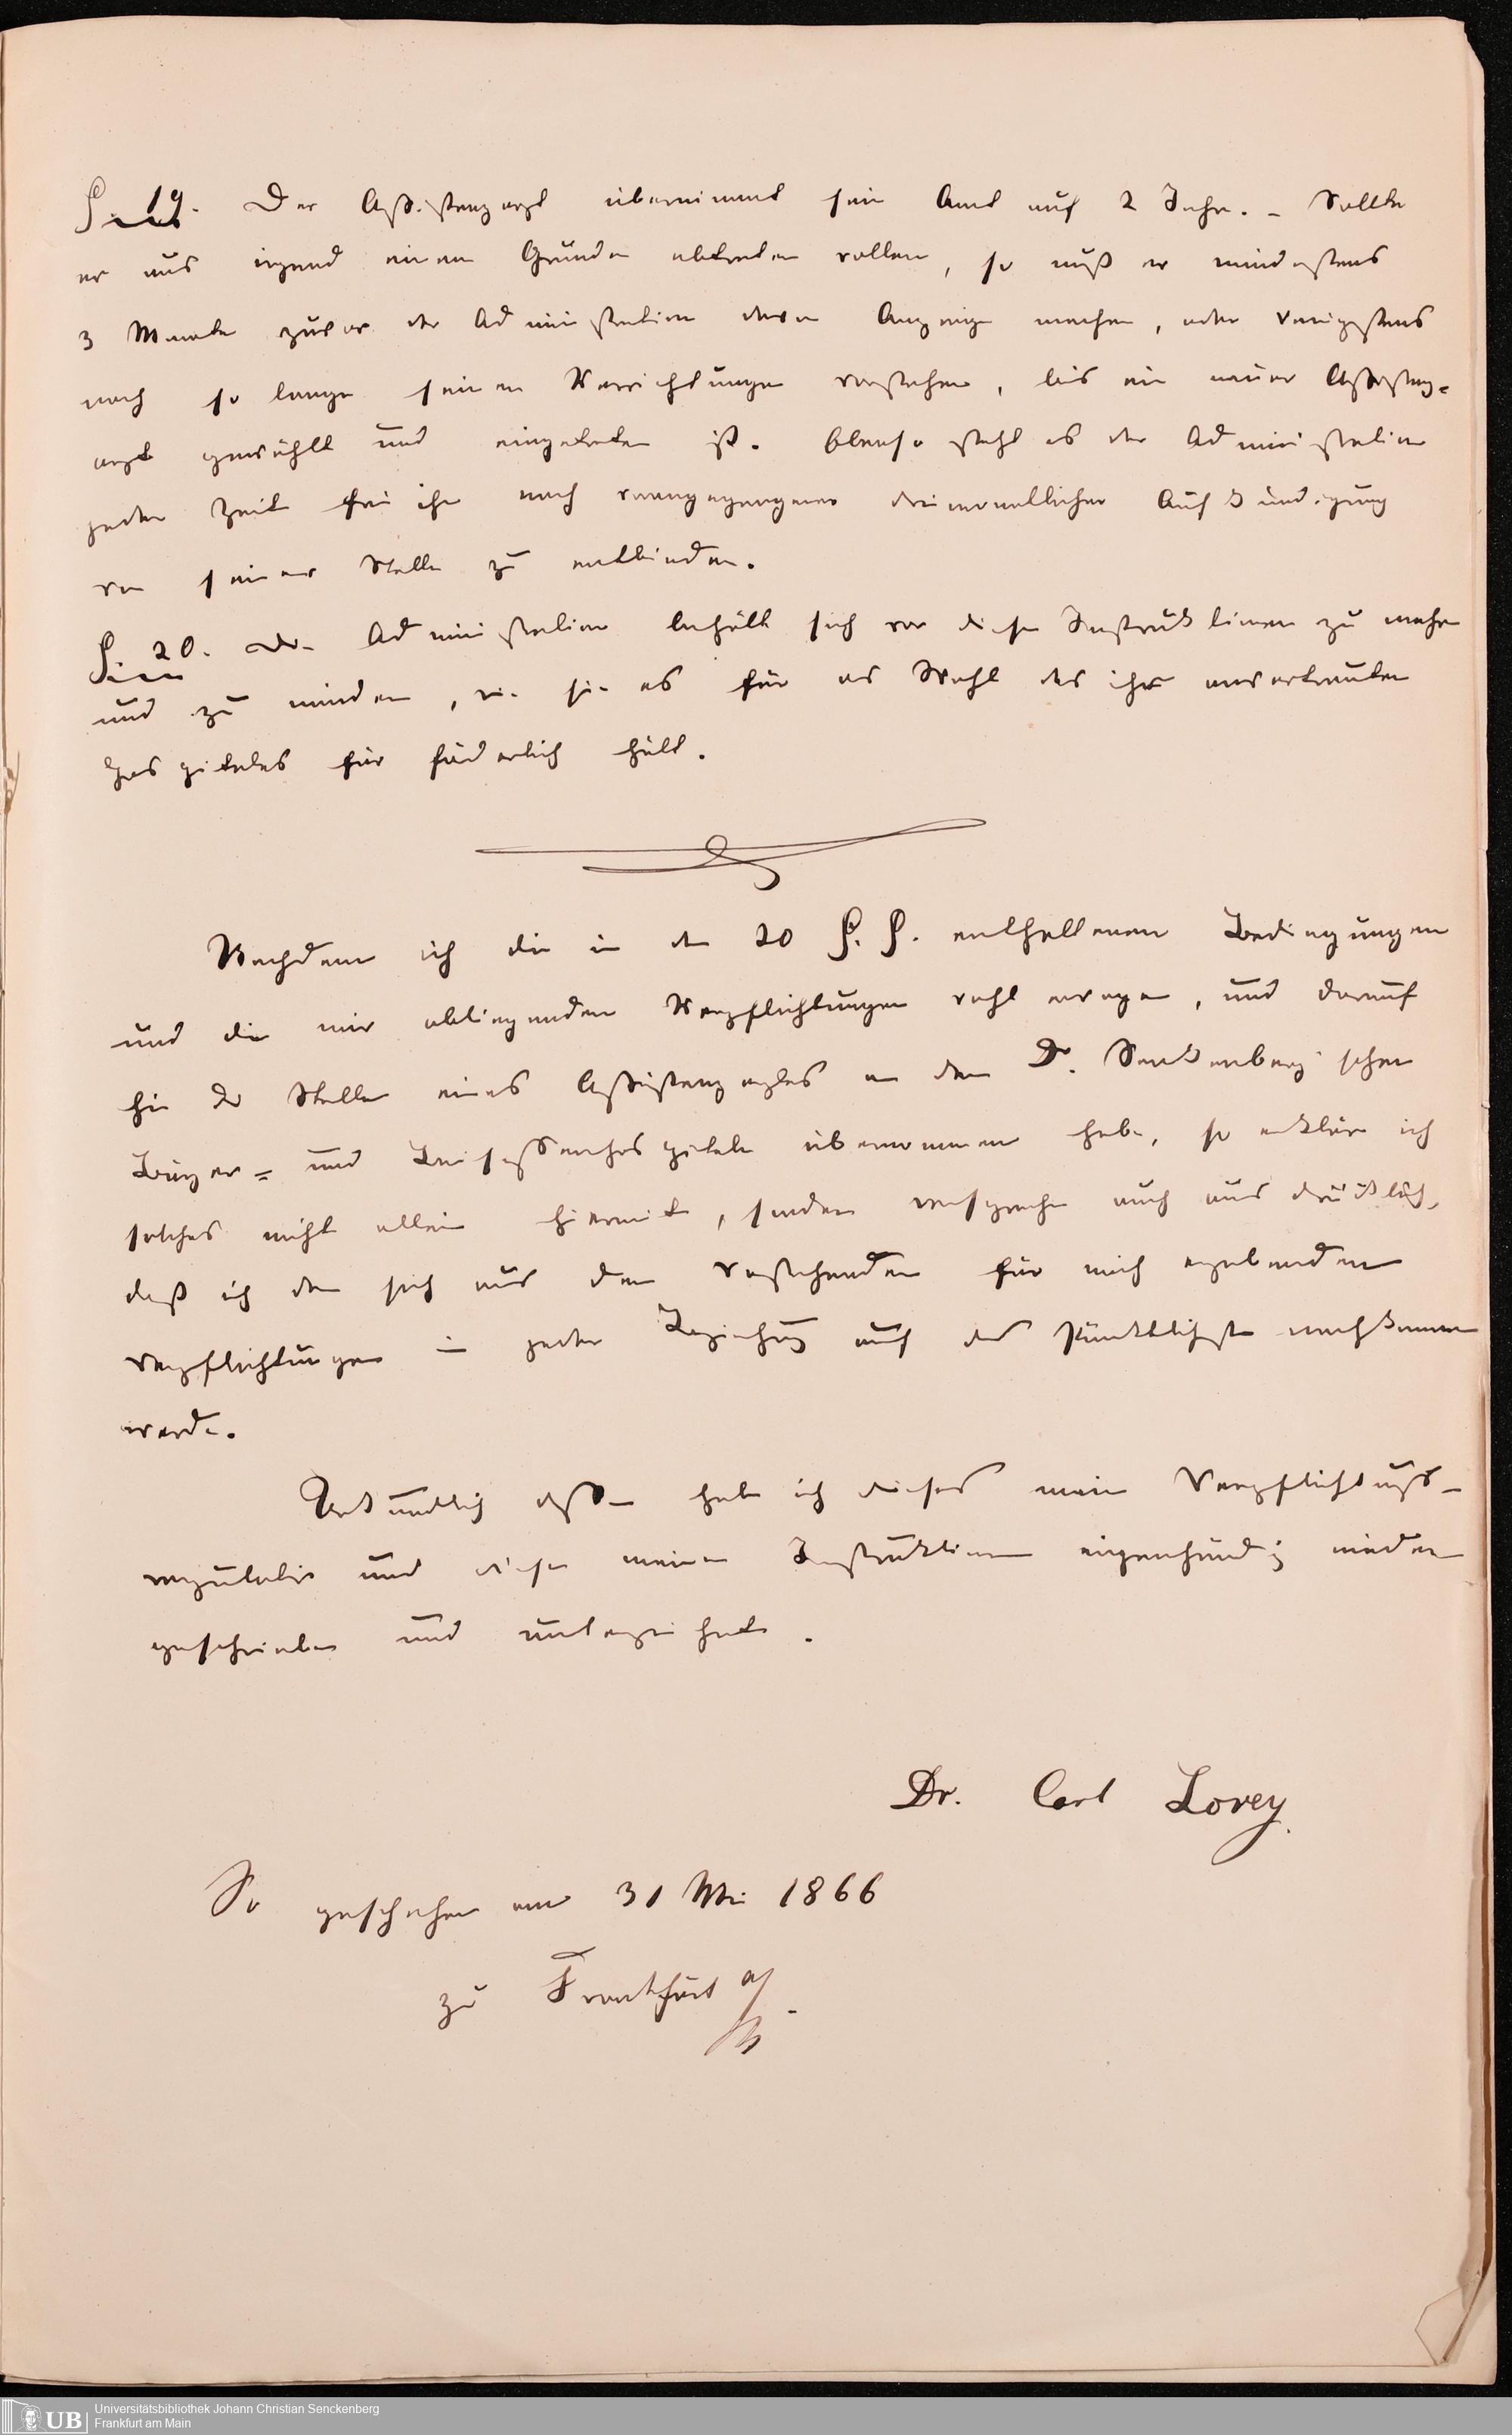 §. 19. Der Assistenzarzt übernimmt sein Amt auf 2 Jahre. – Sollte
er aus irgend einem Grunde abtreten wollen, so muß er mindestens
3 Monate zuvor der Administration davon Anzeige machen, oder wenigstens
noch so lange seinen Verrichtungen vorstehen, bis ein neuer Assistenz=
arzt gewählt und eingetreten ist. Ebenso steht es der Administration
jeder Zeit frei ihn nach vorangegangener dreimonatlicher Aufkündigung
von seiner Stelle zu entbinden.
§. 20. Die Administration behält sich vor diese Instruktionen zu mehren
und zu mindern, wie sie es für das Wohl des ihr anvertrauten
Hospitales für förderlich hält.
Nachdem ich die in den 20 §. §. enthaltenen Bedingungen
und die mir obliegenden Verpflichtungen wohl erwogen, und darauf
hin die Stelle eines Assistenzarztes an dem Dr. Senkenberg'schen
Bürger= und Beisassenhospitale übernommen habe, so erkläre ich
solches nicht allein hiermit, sondern verspreche auch ausdrücklich,
daß ich den sich aus dem Vorstehenden für mich ergebenden
Verpflichtungen in jeder Beziehung auf das Pünktlichste nachkommen
werde.
Urkundlich dessen habe ich dieses mein Verpflichtungs-
regulativ und diese meine Instruktionen eigenhändig nieder
geschrieben und unterzeichnet.
Dr. Carl Lorey.
So geschehen am 31 Mai 1866
zu Frankfurt a/
M.
UB
Universitätsbibliothek Johann Christian Senckenberg
Frankfurt am Main